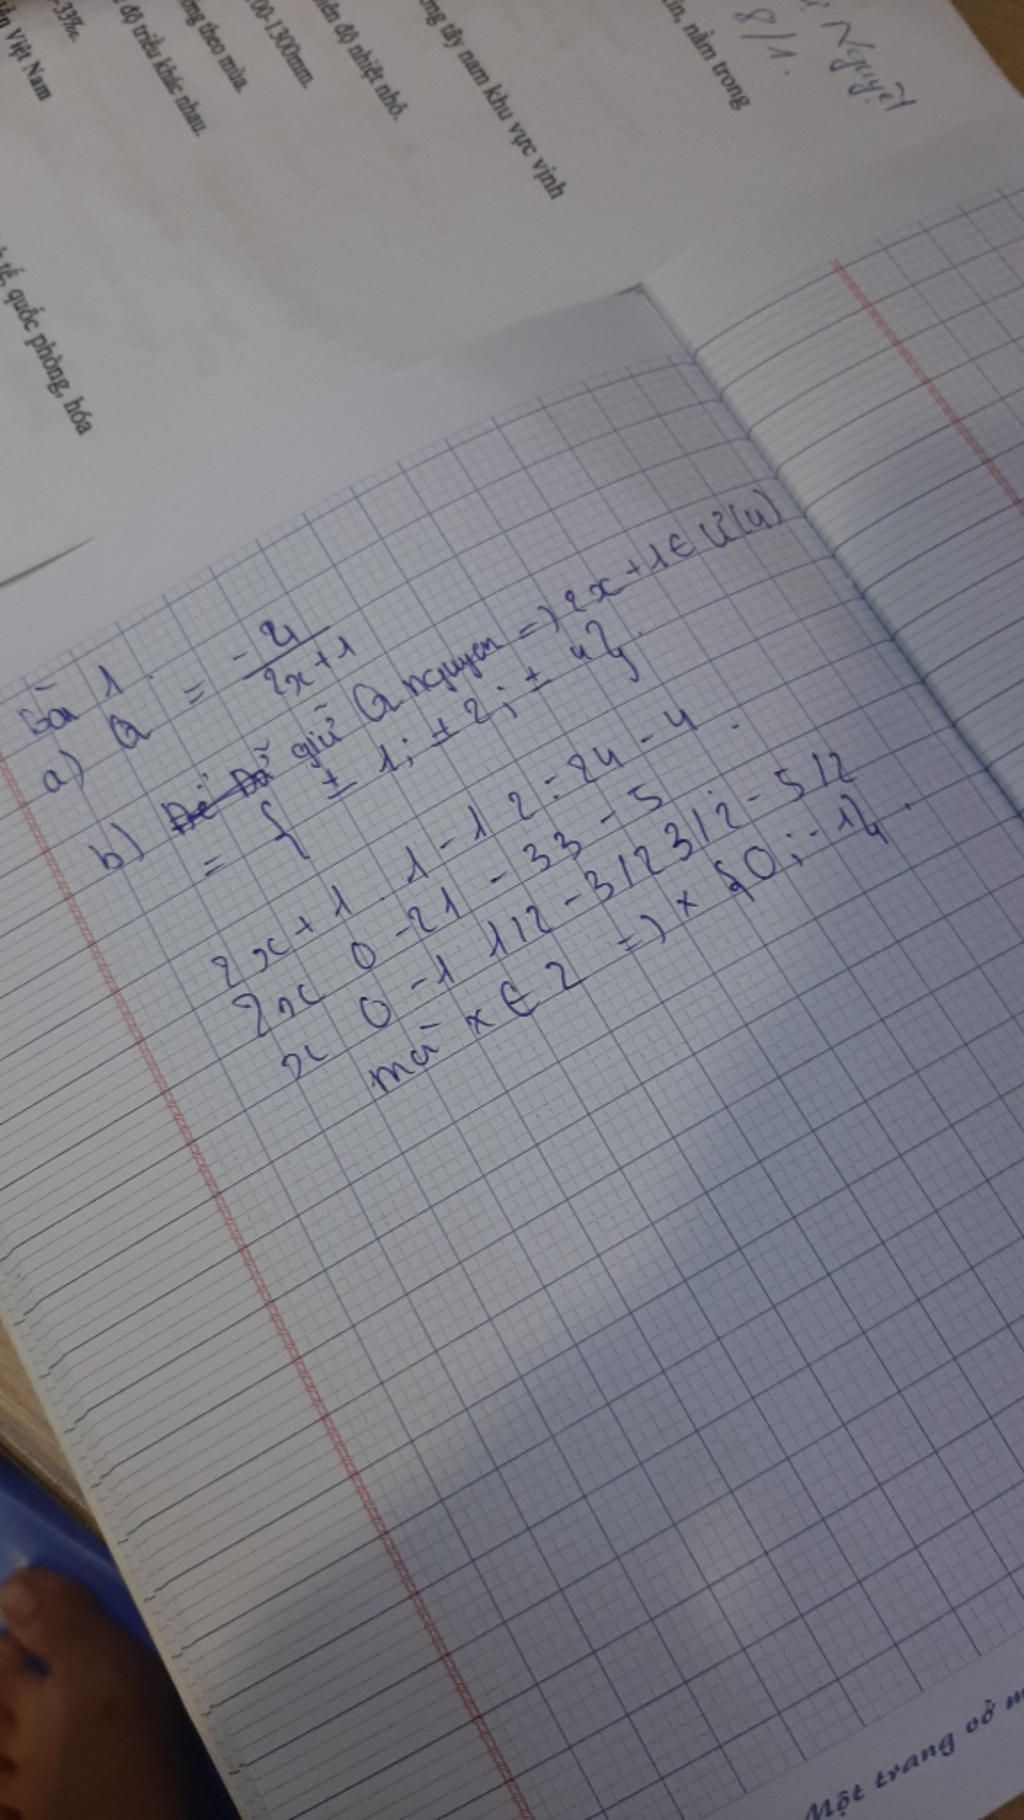 -33‰.
Việt Nam
độ triều khác nhau.
theo mùa.
00-1300mm.
độ nhiệt nhỏ.
tây nam khu vực vịnh
nằm trong
Nguyệt
8/1.
tế, quốc phòng, hóa
Bài 1.
a) Q = - 4/2x+1
b) giữ Q nguyen => 2x+1 ∈ Ư(4)
= { ± 1; ± 2; ± 4}.
2x+1 1 -1 2 -2 4 -4.
2x 0 -2 1 -3 3 -5
x 0 -1 1/2 -3/2 3/2 -5/2
mà x ∈ Z => x {0; -1}.
Một trang vở